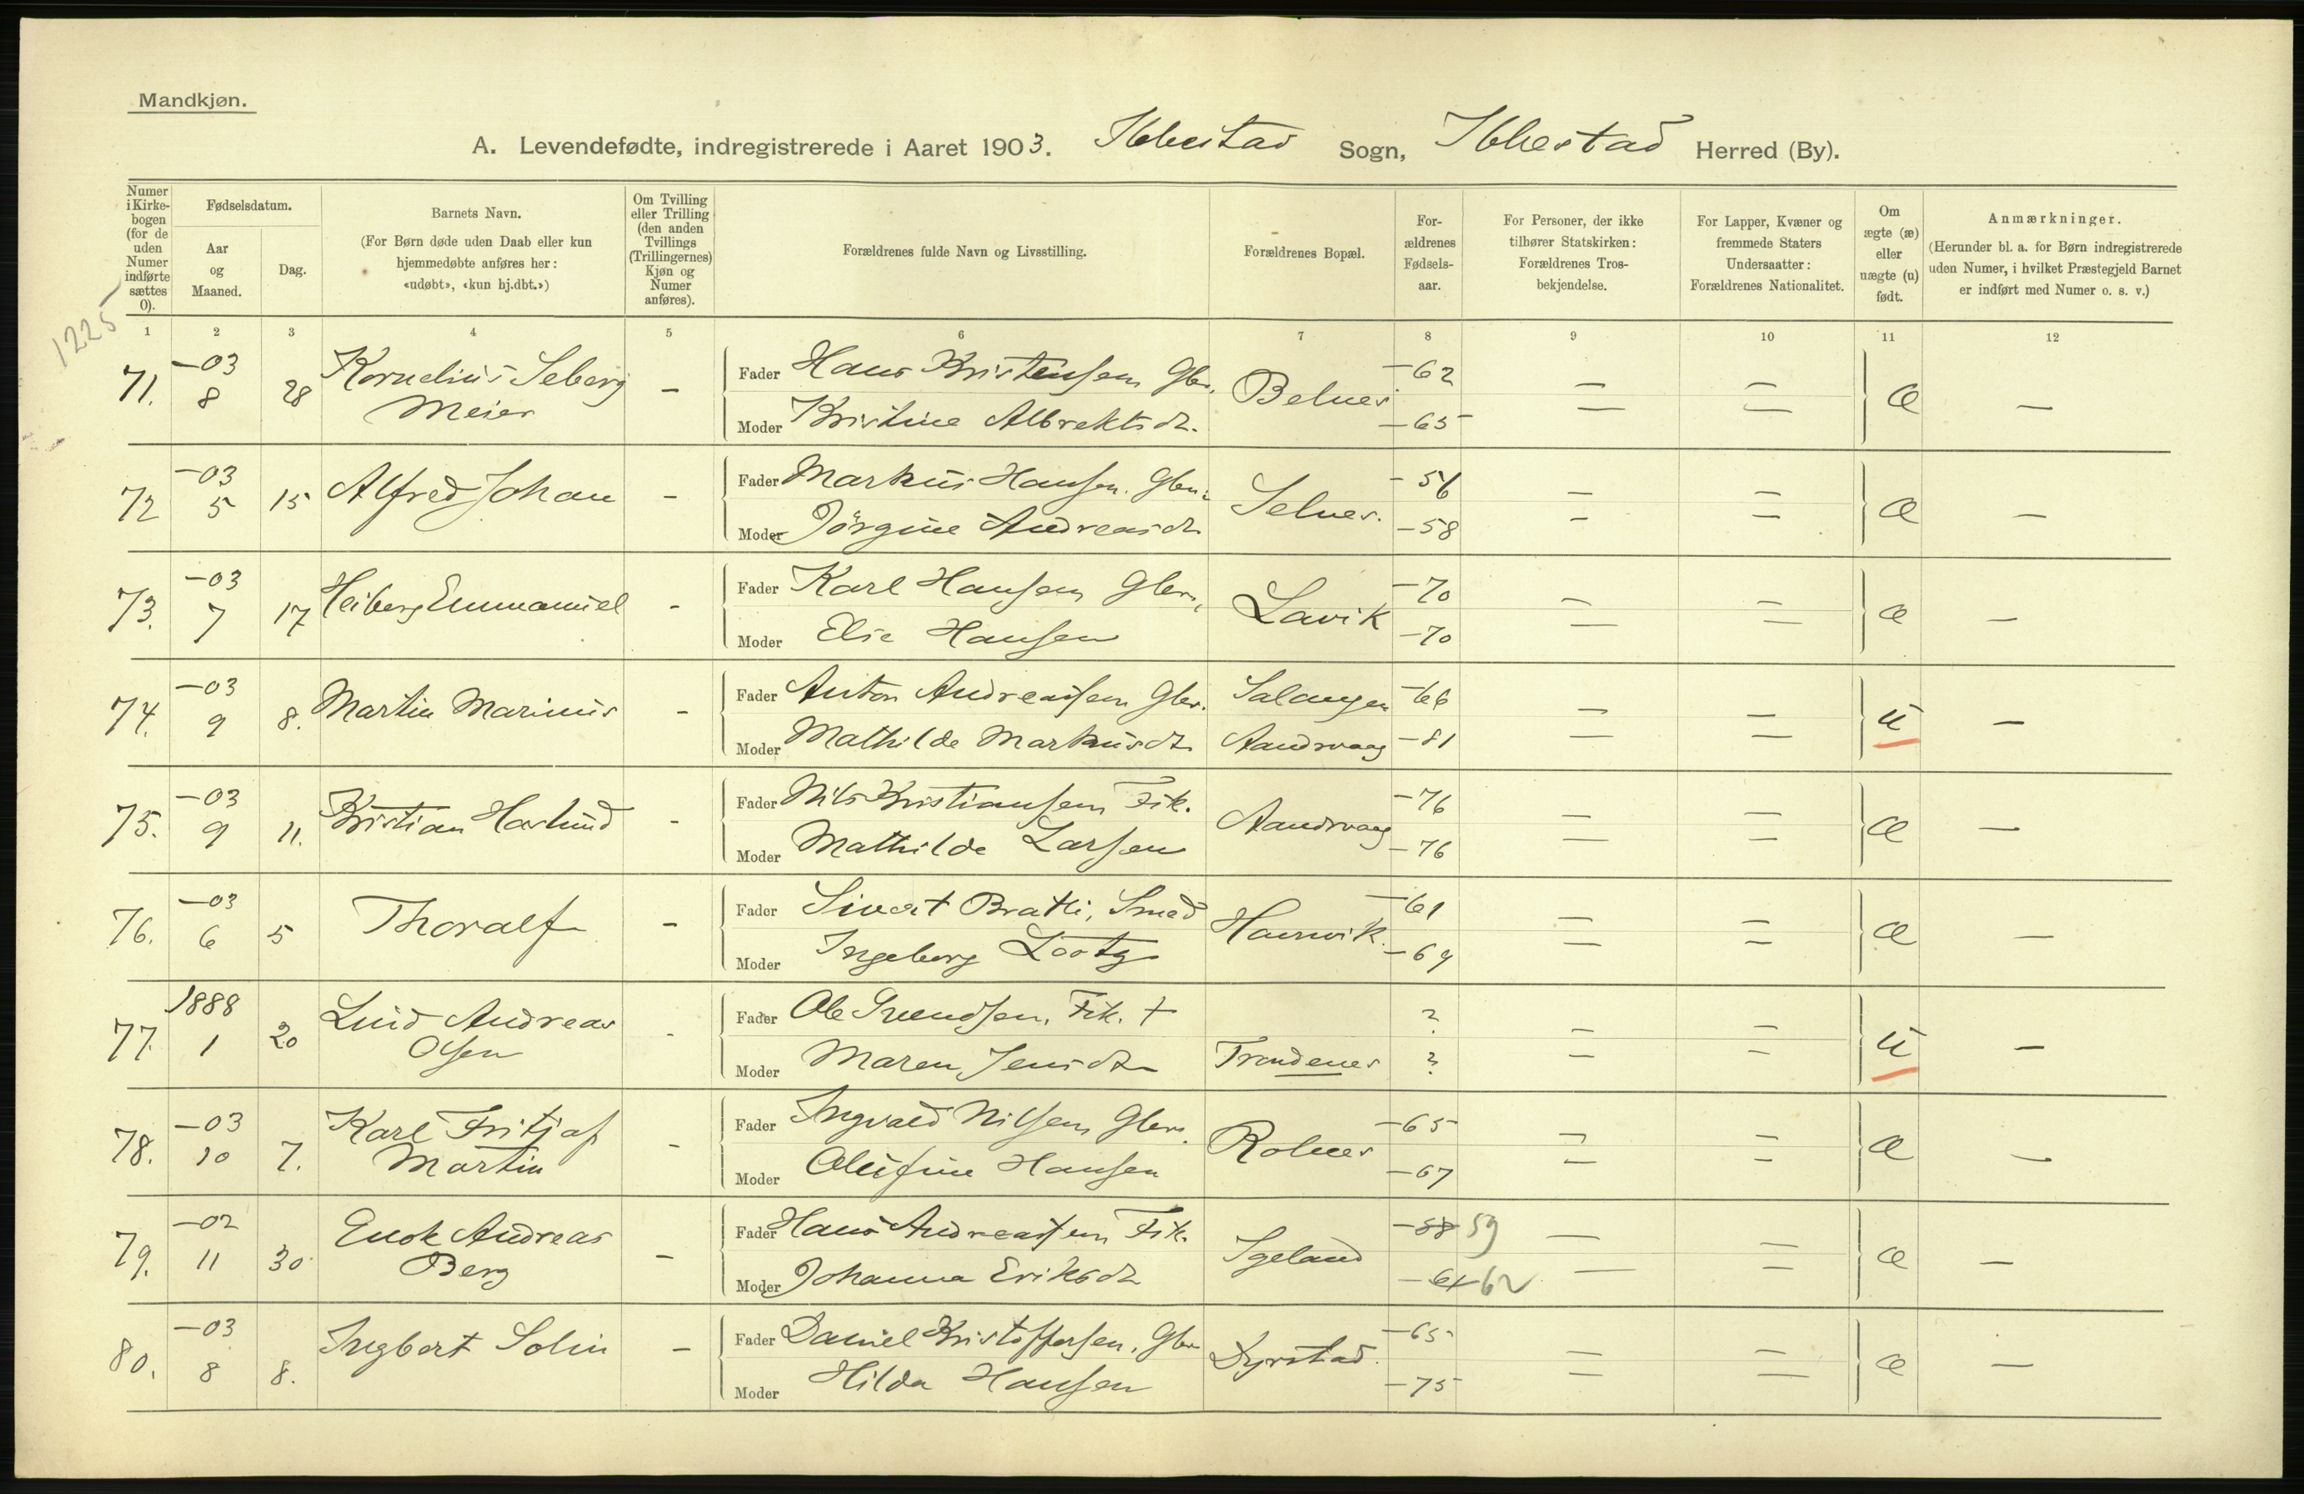 Mandkjøn.
A. Levendefødte, indregistrerede i Aaret 1903. Ibbestad Sogn, Ibbestad Herred (By).
Numer i Kirkebogen (for de uden Numer indførte sættes 0).
Fødselsdatum.
Aar og Maaned.
Dag.
Barnets Navn.
(For Børn døde uden Daab eller kun hjemmedøbte anføres her: «udøbt», «kun hj.dbt.»)
Om Tvilling eller Trilling (den anden Tvillings (Trillingernes) Kjøn og Numer anføres).
Forældrenes fulde Navn og Livsstilling.
Forældrenes Bopæl.
Forældrenes Fødselsaar.
For Personer, der ikke tilhører Statskirken: Forældrenes Trosbekjendelse.
For Lapper, Kvæner og fremmede Staters Undersaatter: Forældrenes Nationalitet.
Om ægte (æ) eller uægte (u) født.
Anmærkninger.
(Herunder bl. a. for Børn indregistrerede uden Numer, i hvilket Præstegjeld Barnet er indført med Numer o. s. v.)
1 2 3 4 5 6 7 8 9 10 11 12
1225
71. -03 8 28 Kornelius Seberg Meier - Fader Hans Kristensen Gbr. Belnes -62 = = æ -
Moder Kristine Albrektsdt. -65
72 -03 5 15 Alfred Johan - Fader Markus Hansen. Gbr. Selnes. -56 = = æ -
Moder Jörgine Andreasdt -58
73. -03 7 17 Heiberg Emmanuel - Fader Karl Hansen Gbr. Lavik -70 = = æ -
Moder Elie Hansen -70
74. -03 9 8. Martin Marinus - Fader Anton Andreassen Gbr. Salangen -66 = = u -
Moder Mathilde Markusdt Aandsvaag -81
75. -03 9 11. Kristian Haslund - Fader Nils Kristiansen Fik. Aandsvaag -76 = = æ -
Moder Mathilde Larsen -76
76. -03 6 5 Thoralf - Fader Sivert Bratli, Smed Havnvik. -61 = = æ -
Moder Ingeborg Lootz -69
77. 1888 1 20 Luid Andreas Olsen - Fader Ole Svendsen, Fik. + ? = = u -
Moder Maren Jensdt Trondenes ?
78. -03 10 7. Karl Fritjof Martin - Fader Ingvald Nilsen Gbr. Rolnes -65 = = æ -
Moder Olufine Hansen -67
79. -02 11 30 Enok Andreas Berg - Fader Hans Andreassen Fik. Igeland -58 59 = = æ -
Moder Johanna Eriksdt -61 62
80. -03 8 8. Ingbert Solin - Fader Daniel Kristoffersen, Gbr Dyrstad. -65 = = æ -
Moder Hilda Hansen -75